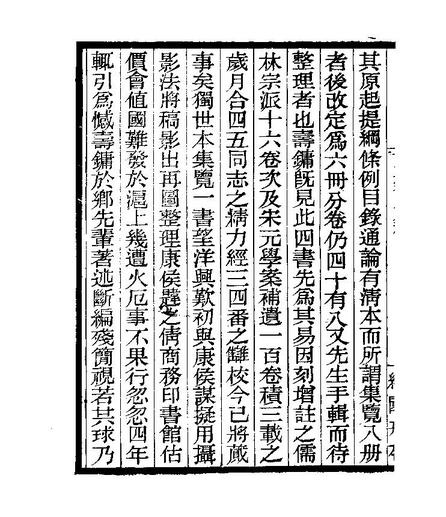 其原起提綱條例目錄通論有淸本而所謂集覽八册
者後改定爲六冊分卷仍四十有八又先生手輯而待
整理者也壽鏞旣見此四書先爲其易因刻增註之儒
林宗派十六卷次及宋元學案補遺一百卷積三載之
歲月合四五同志之精力經三四番之讎校今已將蕆
事矣獨世本集覽一書望洋興歎初與康侯謀擬用攝
影法將稿影出再圖整理康侯韙之倩商務印書館估
價會値國難發於滬上幾遭火厄事不果行忽忽四年
輒引爲憾壽鏞於鄉先輩著述斷編殘簡視若其球乃